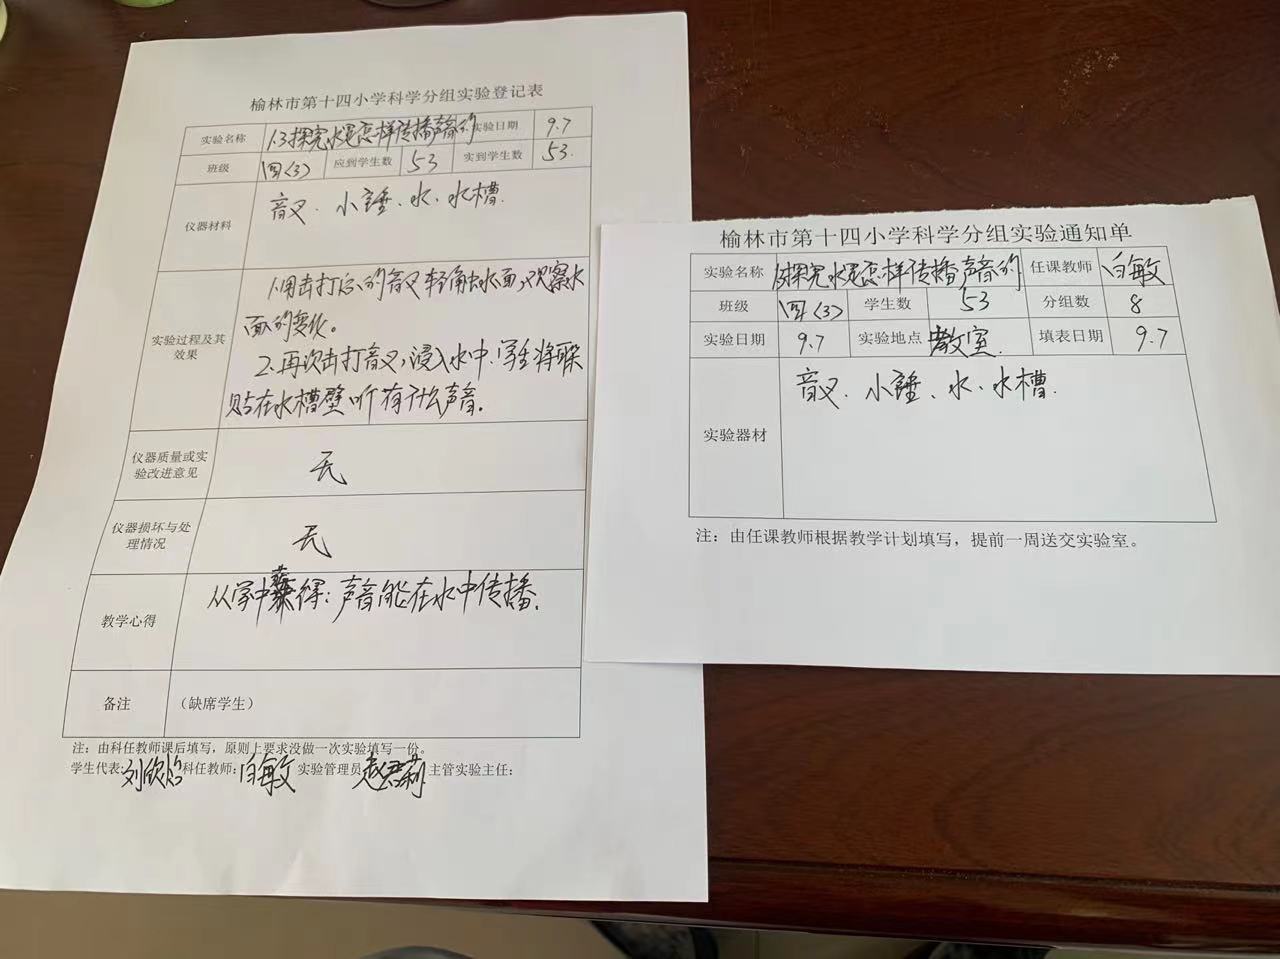 榆林市第十四小学科学分组实验登记表
实验名称 1.3探究水是怎样传播声音的 实验日期 9.7
班级 四(3) 应到学生数 53 实到学生数 53.
仪器材料 音叉、小锤、水、水槽.
实验过程及其
效果
1.用击打后的音叉轻触水面,观察水
面的变化。
2.再次击打音叉,浸入水中,学生将耳朵
贴在水槽壁听有什么声音。
仪器质量或实
验改进意见
无
仪器损坏与处
理情况
无
教学心得 从学中获得:声音能在水中传播.
备注 (缺席学生)
注:由科任教师课后填写,原则上要求没做一次实验填写一份。
学生代表:刘欣 科任教师:白敏 实验管理员 赵君莉 主管实验主任:
榆林市第十四小学科学分组实验通知单
实验名称 1.3探究水是怎样传播声音的 任课教师 白敏
班级 四(3) 学生数 53 分组数 8
实验日期 9.7 实验地点 教室 填表日期 9.7
实验器材 音叉、小锤、水、水槽.
注:由任课教师根据教学计划填写,提前一周送交实验室。